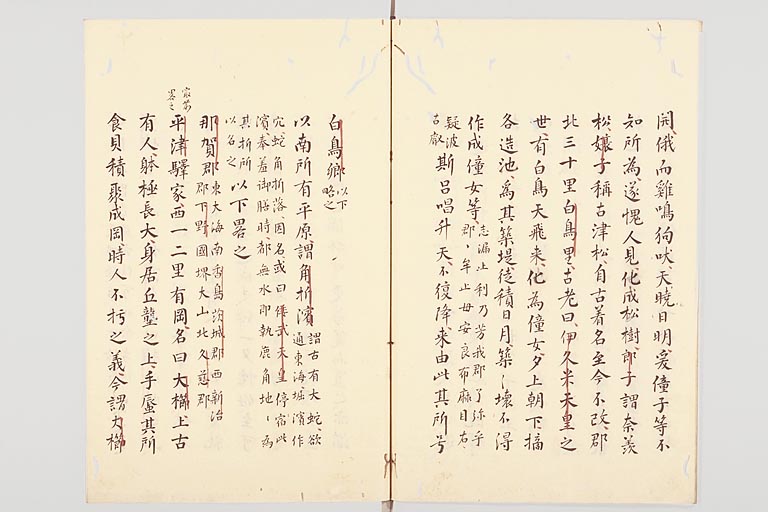 開俄而雞鳴狗吠天曉日明爰僮子等不
知所為遂愧人見化成松樹郎子謂奈美
松孃子稱古津松自古著名至今不改郡
北三十里白鳥里古老曰伊久米天皇之
世有白鳥天飛来化為僮女夕上朝下摘
各造池為其築堤徒積日月築〻壞不得
作成僮女等志漏止利乃芳我郡了弥乎
郡年止母安良布麻目右
疑波
古歌
斯呂唱升天不復降来由此其所号
白鳥鄉以下
略之
以南所有平原謂角折濱謂古有大蛇欲
通東海堀濱作
穴蛇角折落因名或曰倭武天皇停宿此
濱奉羞御膳時都無水即執鹿角地〻為
其折所
以名之
以下畧之
那賀郡東大海南香島茨城郡西新治
郡下野國堺大山北久慈郡
最前
畧之
平津驛家西一二里有岡名曰大櫛上古
有人躰極長大身居丘壟之上手蜃其所
食貝積聚成岡時人不朽之義今謂大櫛